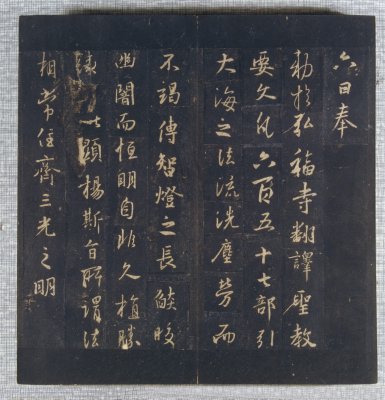 六日奉
勅於弘福寺翻譯聖教
要文凡六百五十七部引
大海之法流洗塵勞而
不竭傳智燈之長燄皎
幽闇而恒明自非久植勝
緣以顯揚斯旨所謂法
相常住齊三光之明